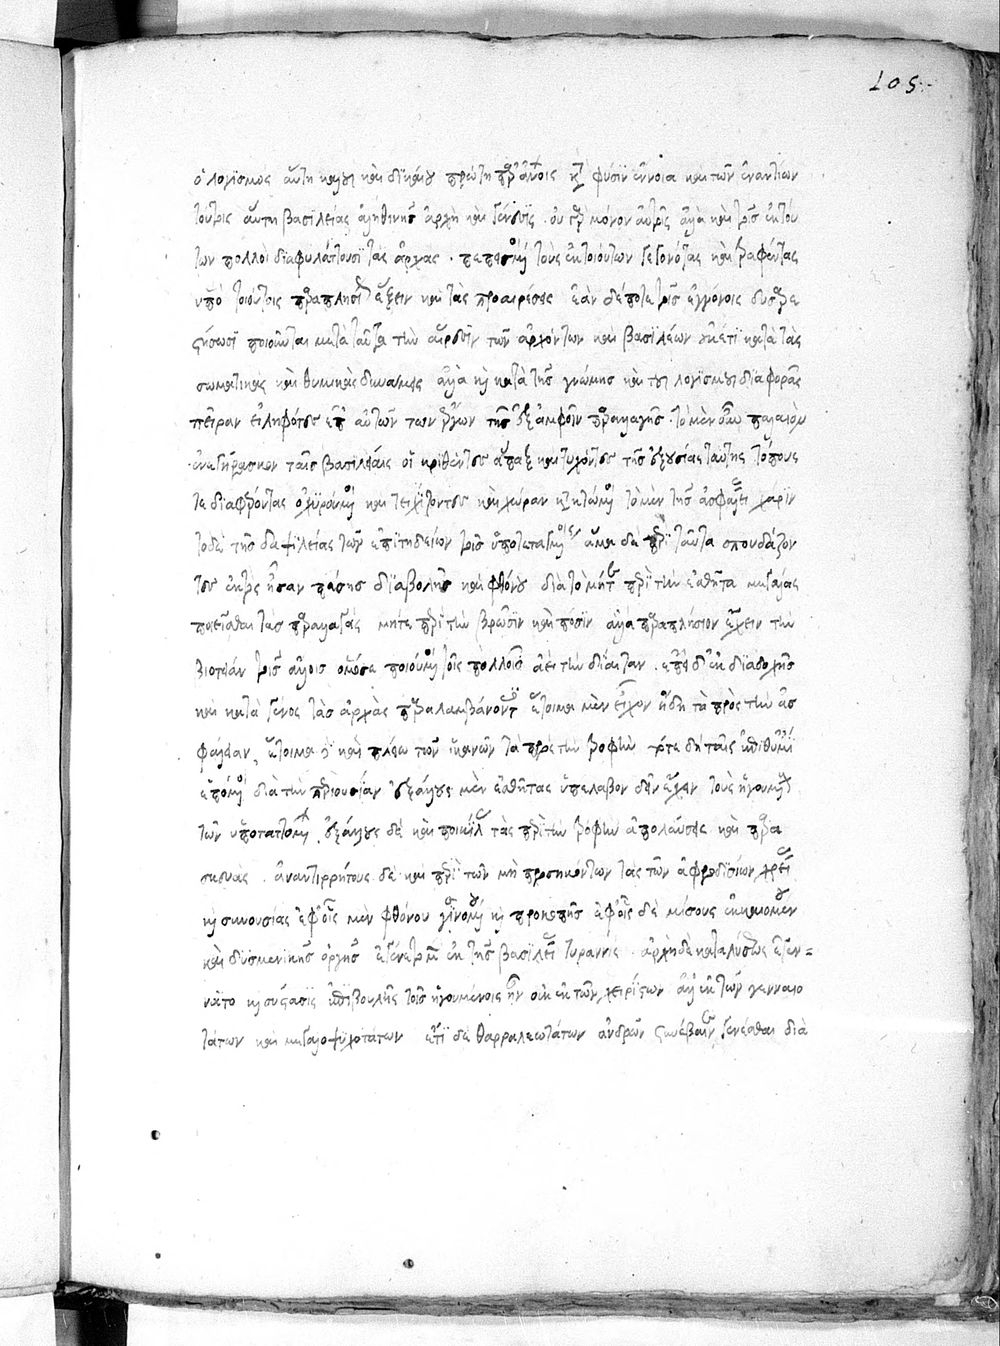 105
ὁ λογισμὸς αὕτη καλοῦ καὶ δικαίου πρώτη παρ' ἀνθρώποις κατὰ φύσιν ἔννοια καὶ τῶν ἐναντίων
τούτοις αὕτη βασιλείας ἀληθινῆς ἀρχὴ καὶ γένεσις · οὐ γὰρ μόνον αὐτοῖς ἀλλὰ καὶ τοῖς ἐκ τού
των πολλοὶ διαφυλάττουσι τὰς ἀρχὰς · πεπεισμένοι τοὺς ἐκ τοιούτων γεγονότας καὶ τραφέντας
ὑπὸ τοιούτοις παραπλησίους ἕξειν καὶ τὰς προαιρέσεις ἐὰν δέ ποτε τοῖς ἐγγόνοις δυσαρε
στήσωσι ποιοῦνται μετὰ ταῦτα τὴν αἵρεσιν τῶν ἀρχόντων καὶ βασιλέων οὐκέτι κατὰ τὰς
σωματικὰς καὶ θυμικὰς δυνάμεις ἀλλὰ καὶ κατὰ τῆς γνώμης καὶ τοῦ λογισμοῦ διαφορᾶς
πεῖραν εἰληφότες ἐπ' αὐτῶν τῶν ἔργων τῆς ἐξ ἀμφοῖν παραλλαγῆς · τὸ μὲν οὖν παλαιὸν
ἐνεγήρασκον ταῖς βασιλείαις οἱ κριθέντες ἅπαξ καὶ τυχόντες τῆς ἐξουσίας ταύτης τόπους
τε διαφέροντας ὀχυρούμενοι καὶ τειχίζοντες καὶ χώραν κατακτώμενοι τὸ μὲν τῆς ἀσφαλείας χάριν
τὸ δὲ τῆς δαψιλείας τῶν ἐπιτηδείων τοῖς ὑποτεταγμένοις ἅμα δὲ περὶ ταῦτα σπουδάζον
τες ἐκτὸς ἦσαν πάσης διαβολῆς καὶ φθόνου διὰ τὸ μήτε περὶ τὴν ἐσθῆτα μεγάλας
ποιεῖσθαι τὰς παραλλαγάς μήτε περὶ τὴν βρῶσιν καὶ πόσιν ἀλλὰ παραπλήσιον ἔχειν τὴν
βιοτείαν τοῖς ἄλλοις ὁμόσε ποιούμενοι τοῖς πολλοῖς ἀεὶ τὴν δίαιταν · ἐπεὶ δ' ἐκ διαδοχῆς
καὶ κατὰ γένος τὰς ἀρχὰς παραλαμβάνοντες ἕτοιμα μὲν εἶχον ἤδη τὰ πρὸς τὴν ἀσ
φάλειαν, ἕτοιμα δὲ καὶ πλείω τῶν ἱκανῶν τὰ πρὸς τὴν τροφὴν τότε δὴ ταῖς ἐπιθυμίαις
ἑπόμενοι διὰ τὴν περιουσίαν ἐξάλλους μὲν ἐσθῆτας ὑπέλαβον δεῖν ἔχειν τοὺς ἡγουμένους
τῶν ὑποταττομένων, ἐξάλλους δὲ καὶ ποικίλας τὰς περὶ τὴν τροφὴν ἀπολαύσεις καὶ παρα
σκευάς · ἀναντιρρήτους δὲ καὶ περὶ τῶν μὴ προσηκόντων τὰς τῶν ἀφροδισίων χρείας
καὶ συνουσίας ἐφ' οἷς μὲν φθόνου γινομένου καὶ προκοπῆς ἐφ' οἷς δὲ μίσους ἐκκαιομένου
καὶ δυσμενικῆς ὀργῆς ἐγένετο μὲν ἐκ τῆς βασιλείας τυραννίς · ἀρχὴ δὲ καταλύσεως ἐγεν=
νᾶτο καὶ σύστασις ἐπιβουλῆς τοῖς ἡγουμένοις ἣν οὐκ ἐκ τῶν χειρίστων ἀλλ' ἐκ τῶν γενναιο
τάτων καὶ μεγαλοψυχοτάτων ἔτι δὲ θαρραλεωτάτων ἀνδρῶν συνέβαινε γενέσθαι διὰ